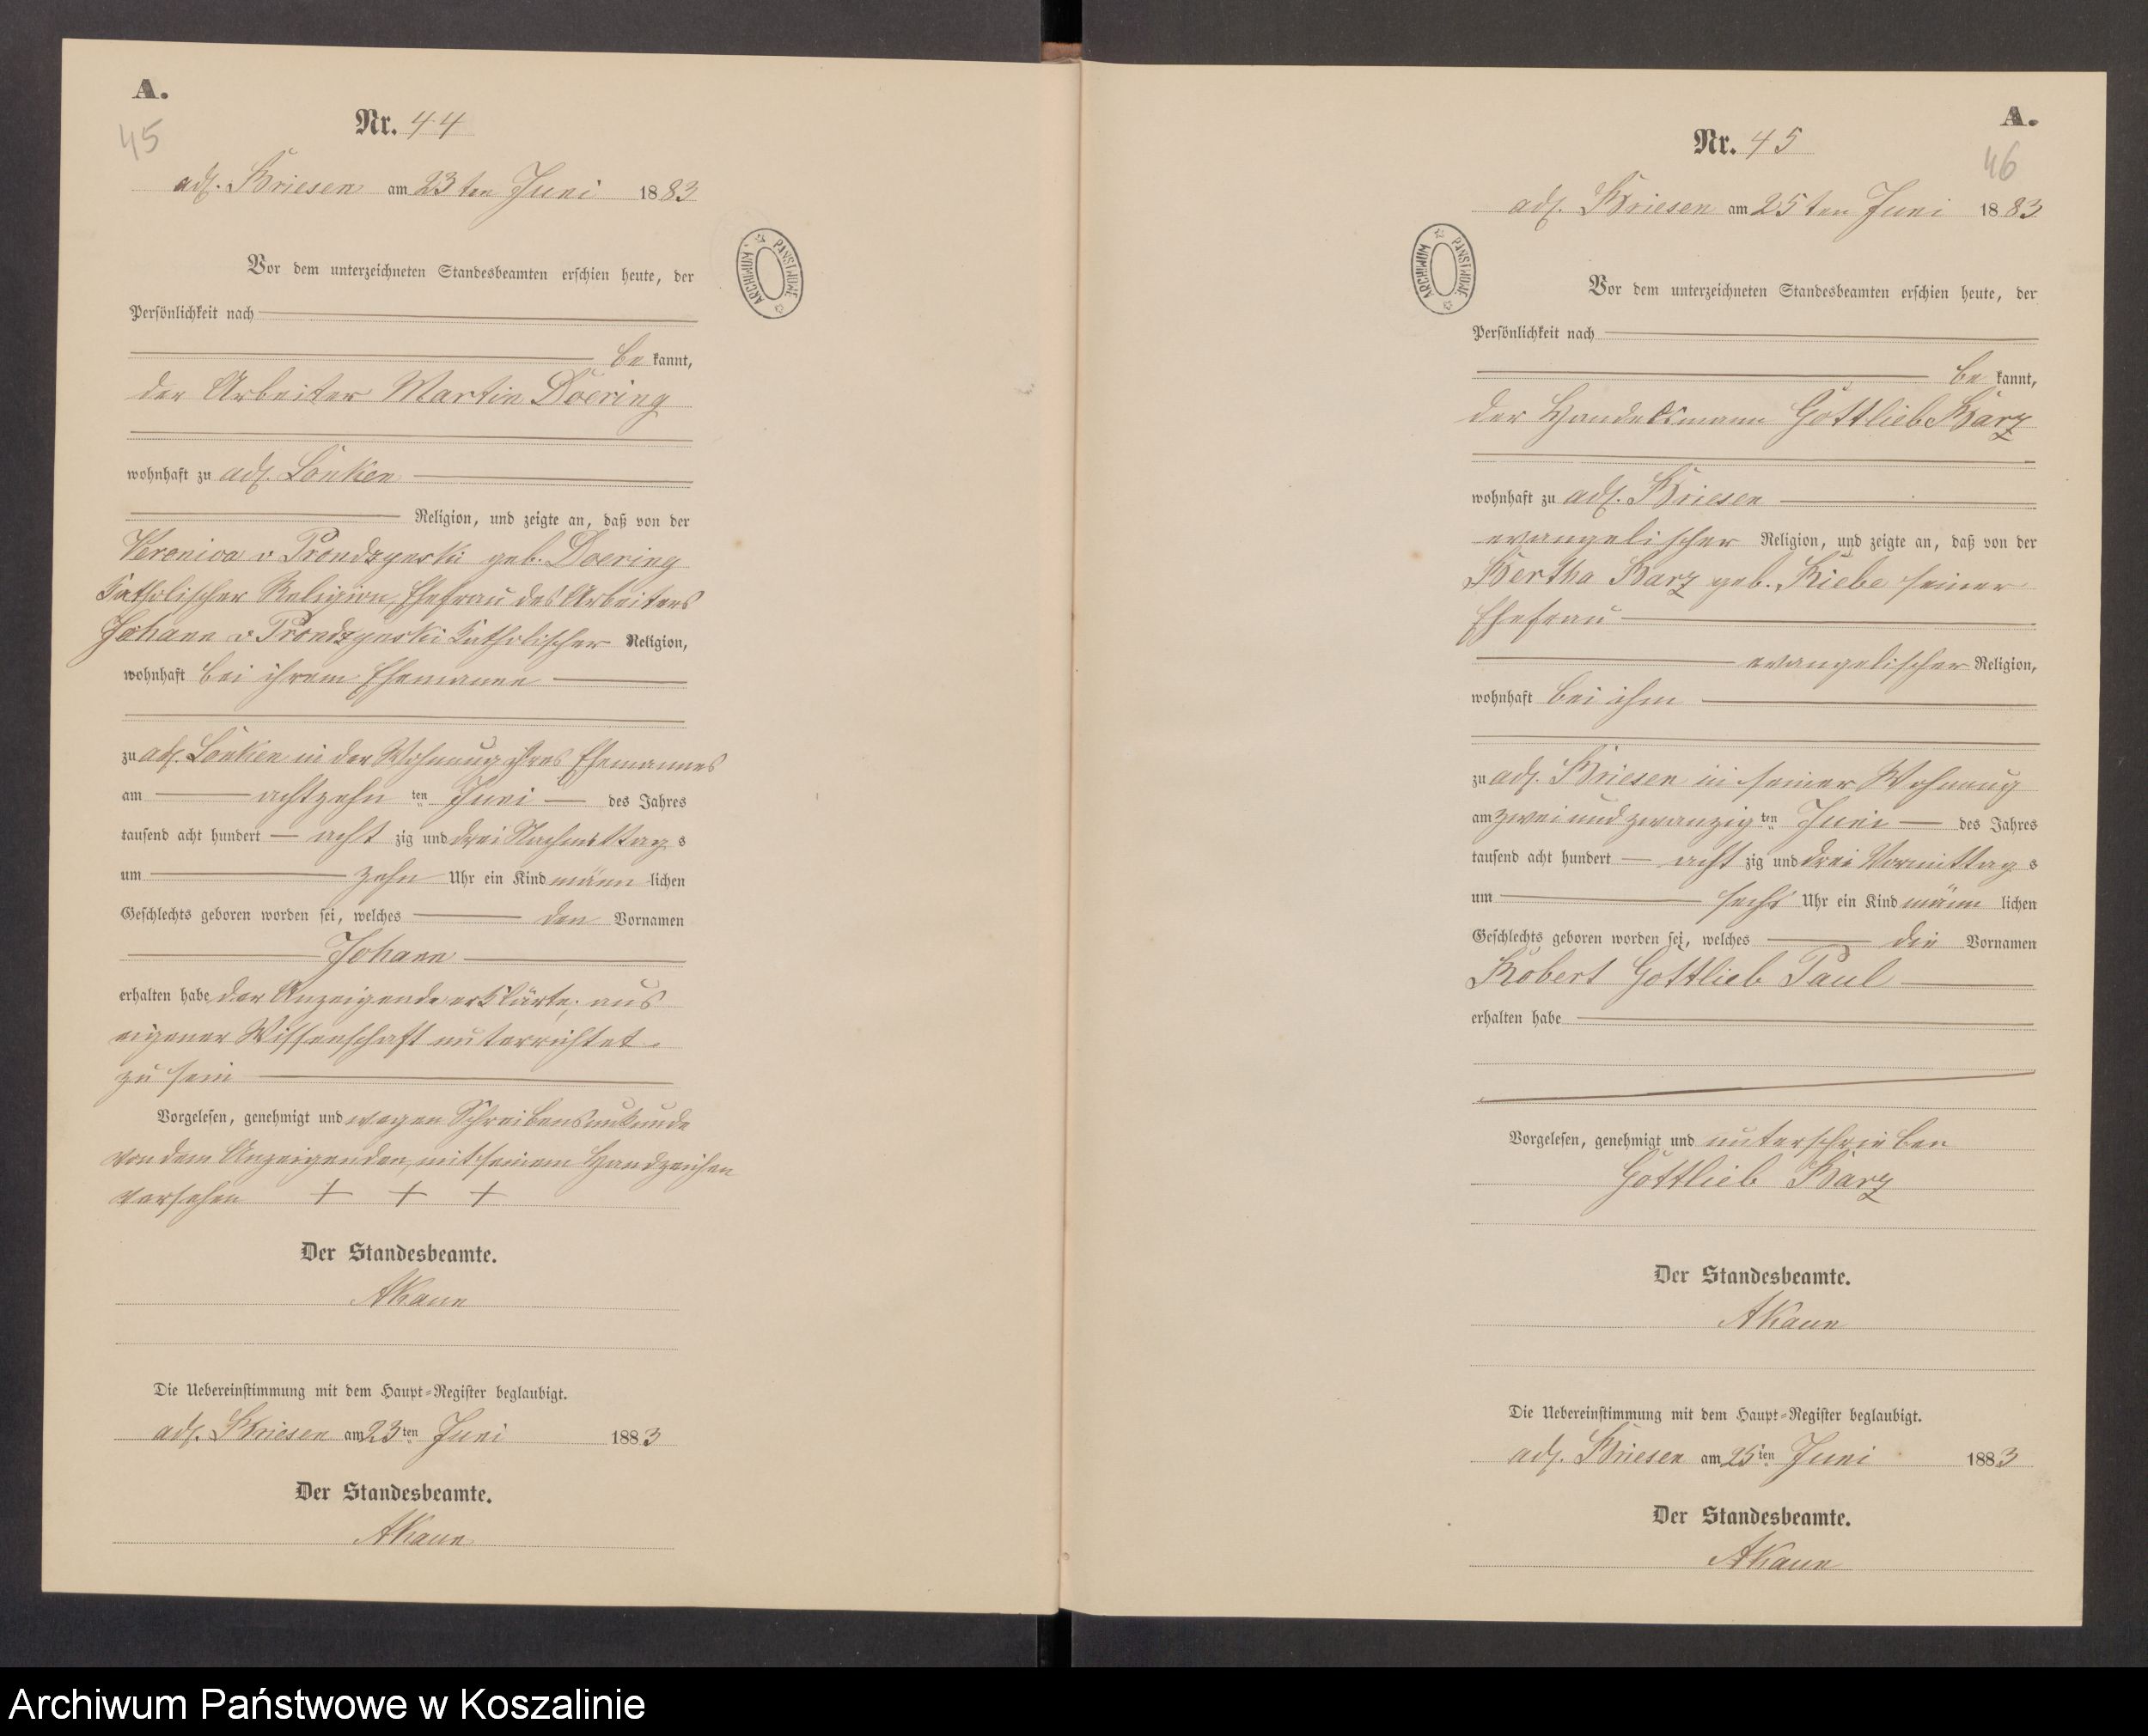 A.
45
Nr. 44
adl. Briesen am 23ten Juni 1883
Vor dem unterzeichneten Standesbeamten erschien heute, der
Persönlichkeit nach
be kannt,
der Arbeiter Martin Doering
wohnhaft zu adl. Lonken
Religion, und zeigte an, daß von der
Veronica v Prondzynski geb. Doering
katholischer Religion, Ehefrau des Arbeiters
Johann v Prondzynski katholischer Religion,
wohnhaft bei ihrem Ehemanne
zu adl. Lonken in der Wohnung ihres Ehemannes
am achtzehn ten Juni des Jahres
tausend acht hundert acht zig und drei Nachmittag s
um zehn Uhr ein Kind männ lichen
Geschlechts geboren worden sei, welches den Vornamen
Johann
erhalten habe, der Anzeigende erklärte, aus
eigener Wissenschaft unterrichtet
zu sein
Vorgelesen, genehmigt und wegen Schreibensunkunde
von dem Anzeigenden, mit seinem Handzeichen
versehen + + +
Der Standesbeamte.
AKaun
Die Uebereinstimmung mit dem Haupt-Register beglaubigt.
adl. Briesen am 23ten Juni 1883
Der Standesbeamte.
AKaun
ARCHIWUM PAŃSTWOWE
A.
46
Nr. 45
adl. Briesen am 25ten Juni 1883
Vor dem unterzeichneten Standesbeamten erschien heute, der
Persönlichkeit nach
be kannt,
der Handelsmann Gottlieb Barz
wohnhaft zu adl. Briesen
evangelischer Religion, und zeigte an, daß von der
Bertha Barz geb. Kiebe seiner
Ehefrau
evangelischer Religion,
wohnhaft bei ihm
zu adl. Briesen in seiner Wohnung
am zwei und zwanzig ten Juni des Jahres
tausend acht hundert acht zig und drei Vormittag s
um sechs Uhr ein Kind männ lichen
Geschlechts geboren worden sei, welches die Vornamen
Robert Gottlieb Paul
erhalten habe
Vorgelesen, genehmigt und unterschrieben
Gottlieb Barz
Der Standesbeamte.
AKaun
Die Uebereinstimmung mit dem Haupt-Register beglaubigt.
adl. Briesen am 25ten Juni 1883
Der Standesbeamte.
AKaun
ARCHIWUM PAŃSTWOWE
Archiwum Państwowe w Koszalinie